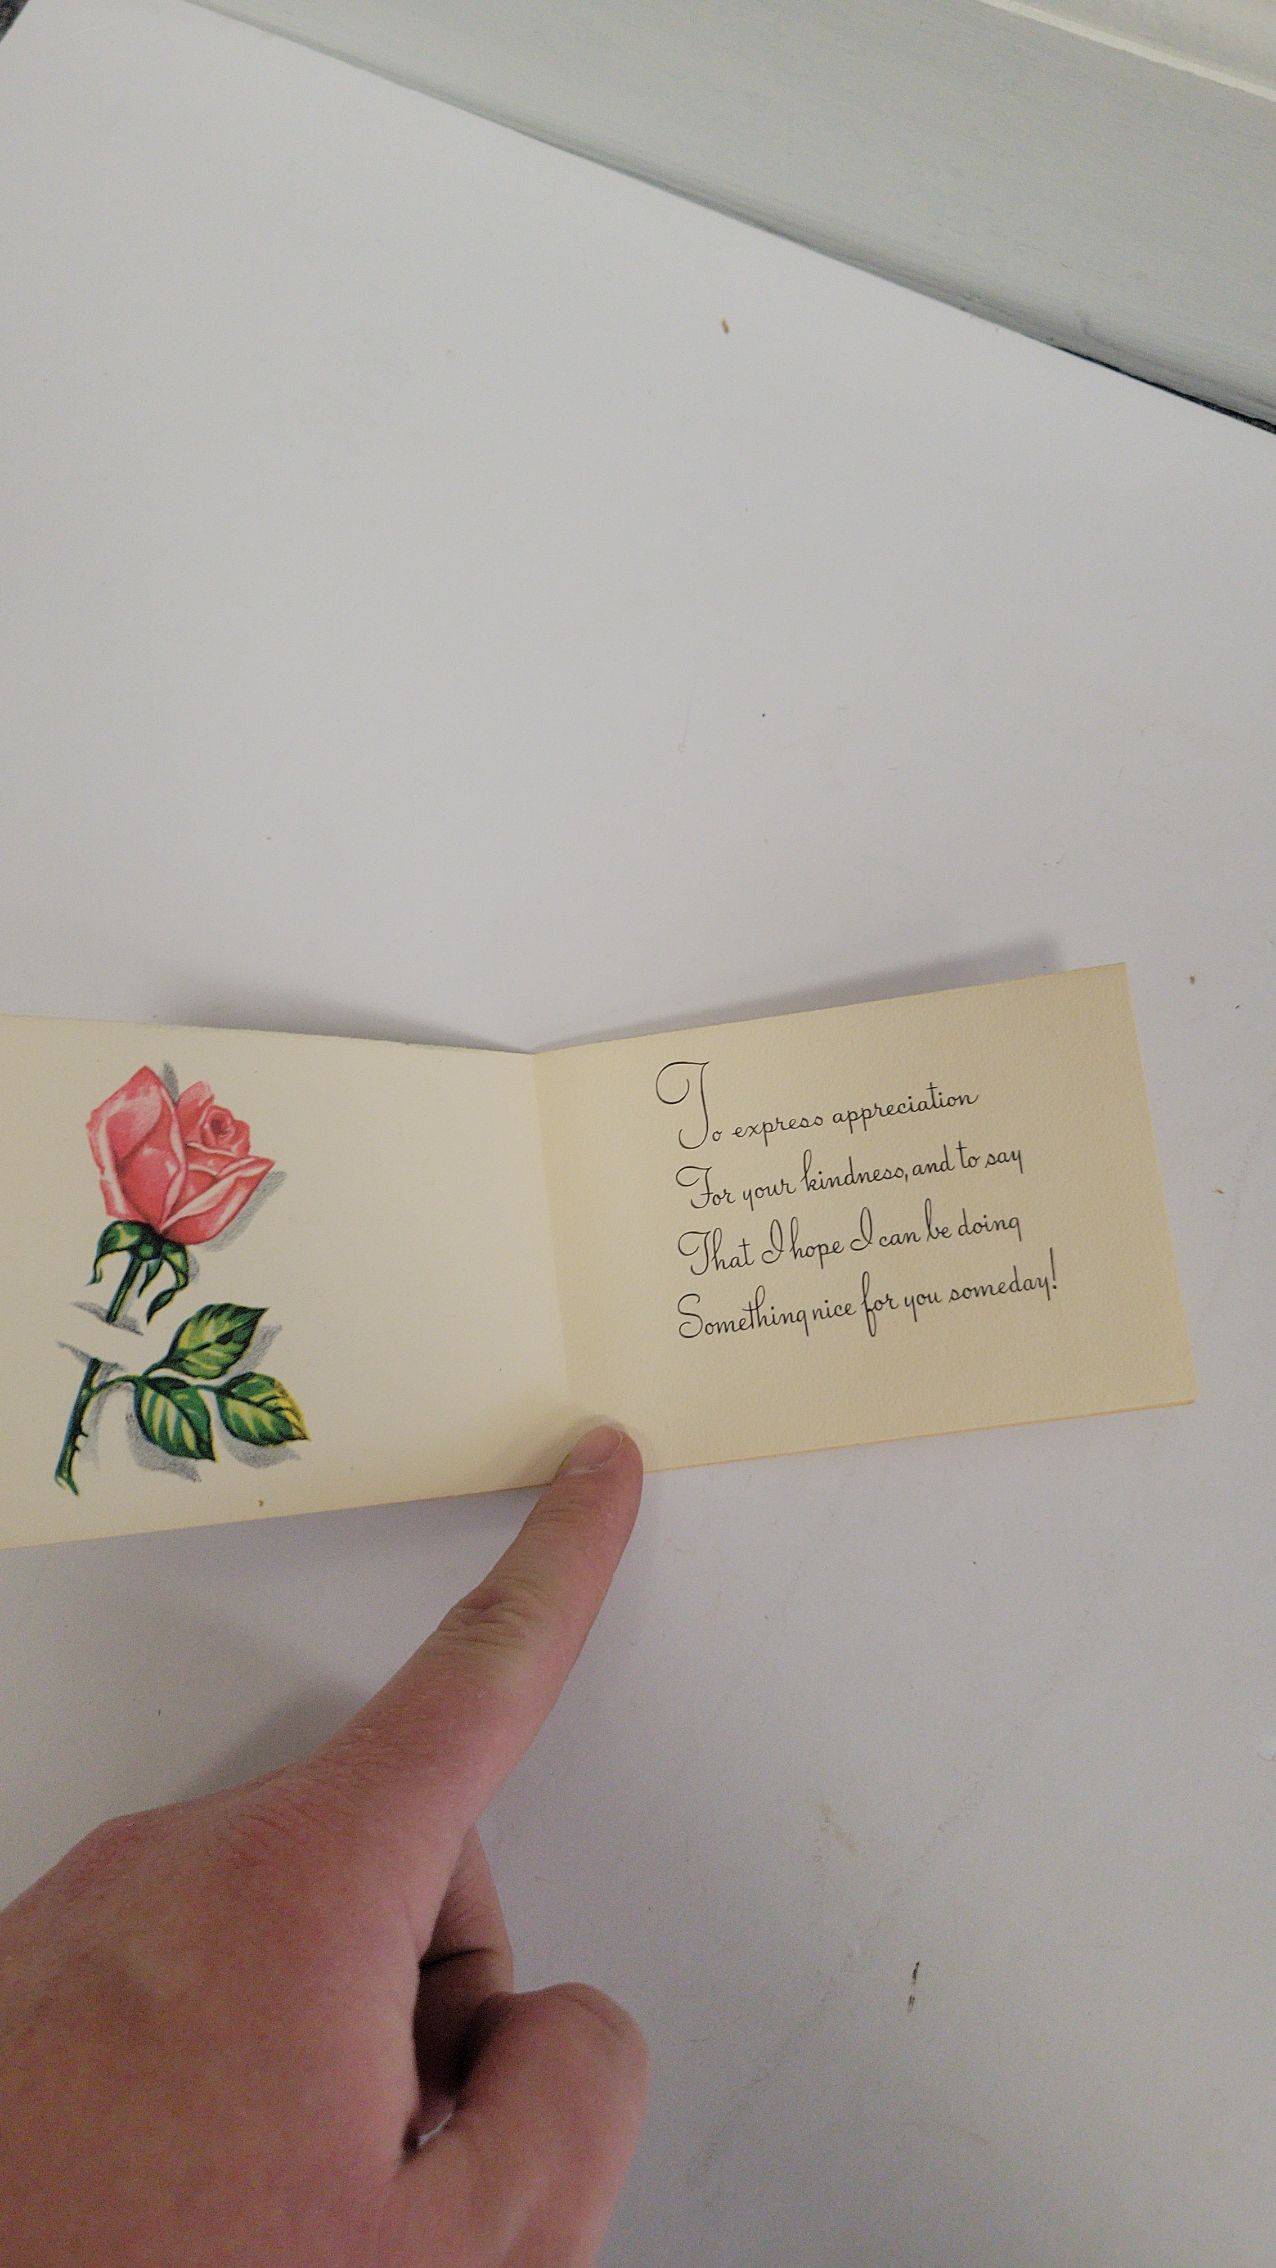 To express appreciation
For your kindness, and to say
That I hope I can be doing
Something nice for you someday!